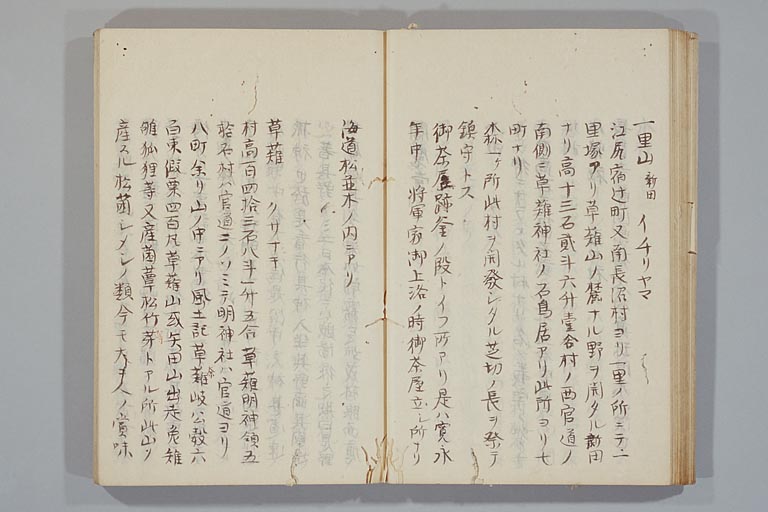 一里山 新田 イチリヤマ
江尻宿辻町又南長沼村ヨリ一里ノ所ニテ一
里塚アリ草薙山ノ麓ナル野ヲ開タル新田
ナリ高十三石貳斗六升壹合村ノ西官道ノ
南側ニ草薙神社ノ石鳥居アリ此所ヨリ七
町ナリ
森一ヶ所此村ヲ開發シタル芝切ノ長ヲ祭テ
鎮守トス
御茶屋跡釜ノ段トイフ所アリ是ハ寛永
年中 将軍家御上洛ノ時御茶屋立シ所ナリ
海道松並木ノ内ニアリ
草薙 クサナキ
村高百四拾三石八斗一升五合草薙明神領五
拾石村ハ官道ニノソミテ明神社ハ官道ヨリ
八町余リ山ノ中ニアリ風土記草薙岐公穀六
百束假粟四百丸草薙山或矢田山出走兔雉
雊狐狸等又産菌蕈松竹茅トアル所此山ノ
産スル松菌シメシノ類今モ大夫人ノ賞味